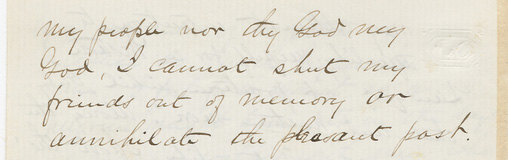 my people nor thy God my
God, I cannot shut my
friends out of memory or
annihilate the pleasant past.